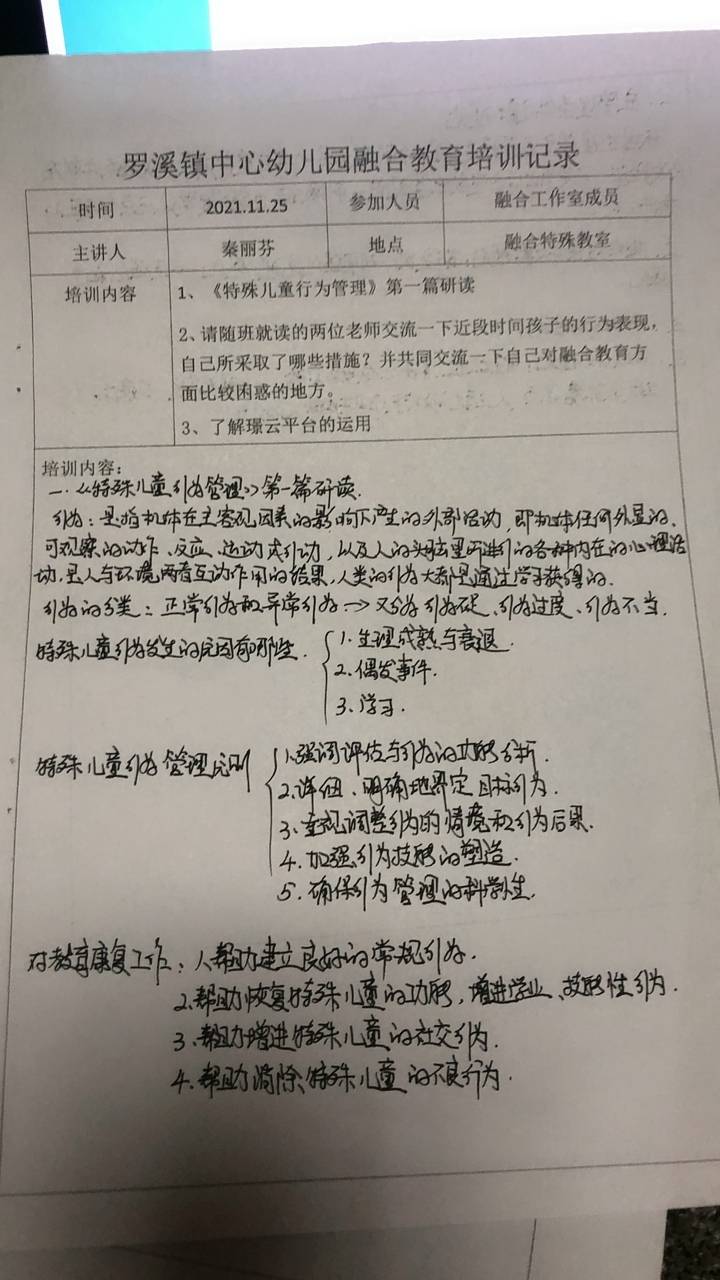 罗溪镇中心幼儿园融合教育培训记录
时间 2021.11.25 参加人员 融合工作室成员
主讲人 秦丽芬 地点 融合特殊教室
培训内容 1、《特殊儿童行为管理》第一篇研读
2、请随班就读的两位老师交流一下近段时间孩子的行为表现，
自己所采取了哪些措施？并共同交流一下自己对融合教育方
面比较困惑的地方。
3、了解璟云平台的运用
培训内容：
一.《特殊儿童行为管理》第一篇研读.
行为：是指机体在主客观因素的影响下产生的外部活动，即机体任何外显的、
可观察的动作、反应、运动或行动，以及人的头脑里所进行的各种内在的心理活
动，是人与环境两者互动作用的结果，人类的行为大都是通过学习获得的.
行为的分类：正常行为和异常行为→又分为行为不足、行为过度、行为不当.
特殊儿童行为发生的原因有哪些. 1.生理成熟与衰退.
2.偶发事件.
3.学习.
特殊儿童行为管理原则 1.强调评估与行为的功能分析.
2.详细、明确地界定目标行为.
3.重视调整行为的情境和行为后果.
4.加强行为技能的塑造.
5.确保行为管理的科学性.
对教育康复工作：1.帮助建立良好的常规行为.
2.帮助恢复特殊儿童的功能，增进学业、技能性行为.
3.帮助增进特殊儿童的社交行为.
4.帮助消除特殊儿童的不良行为.